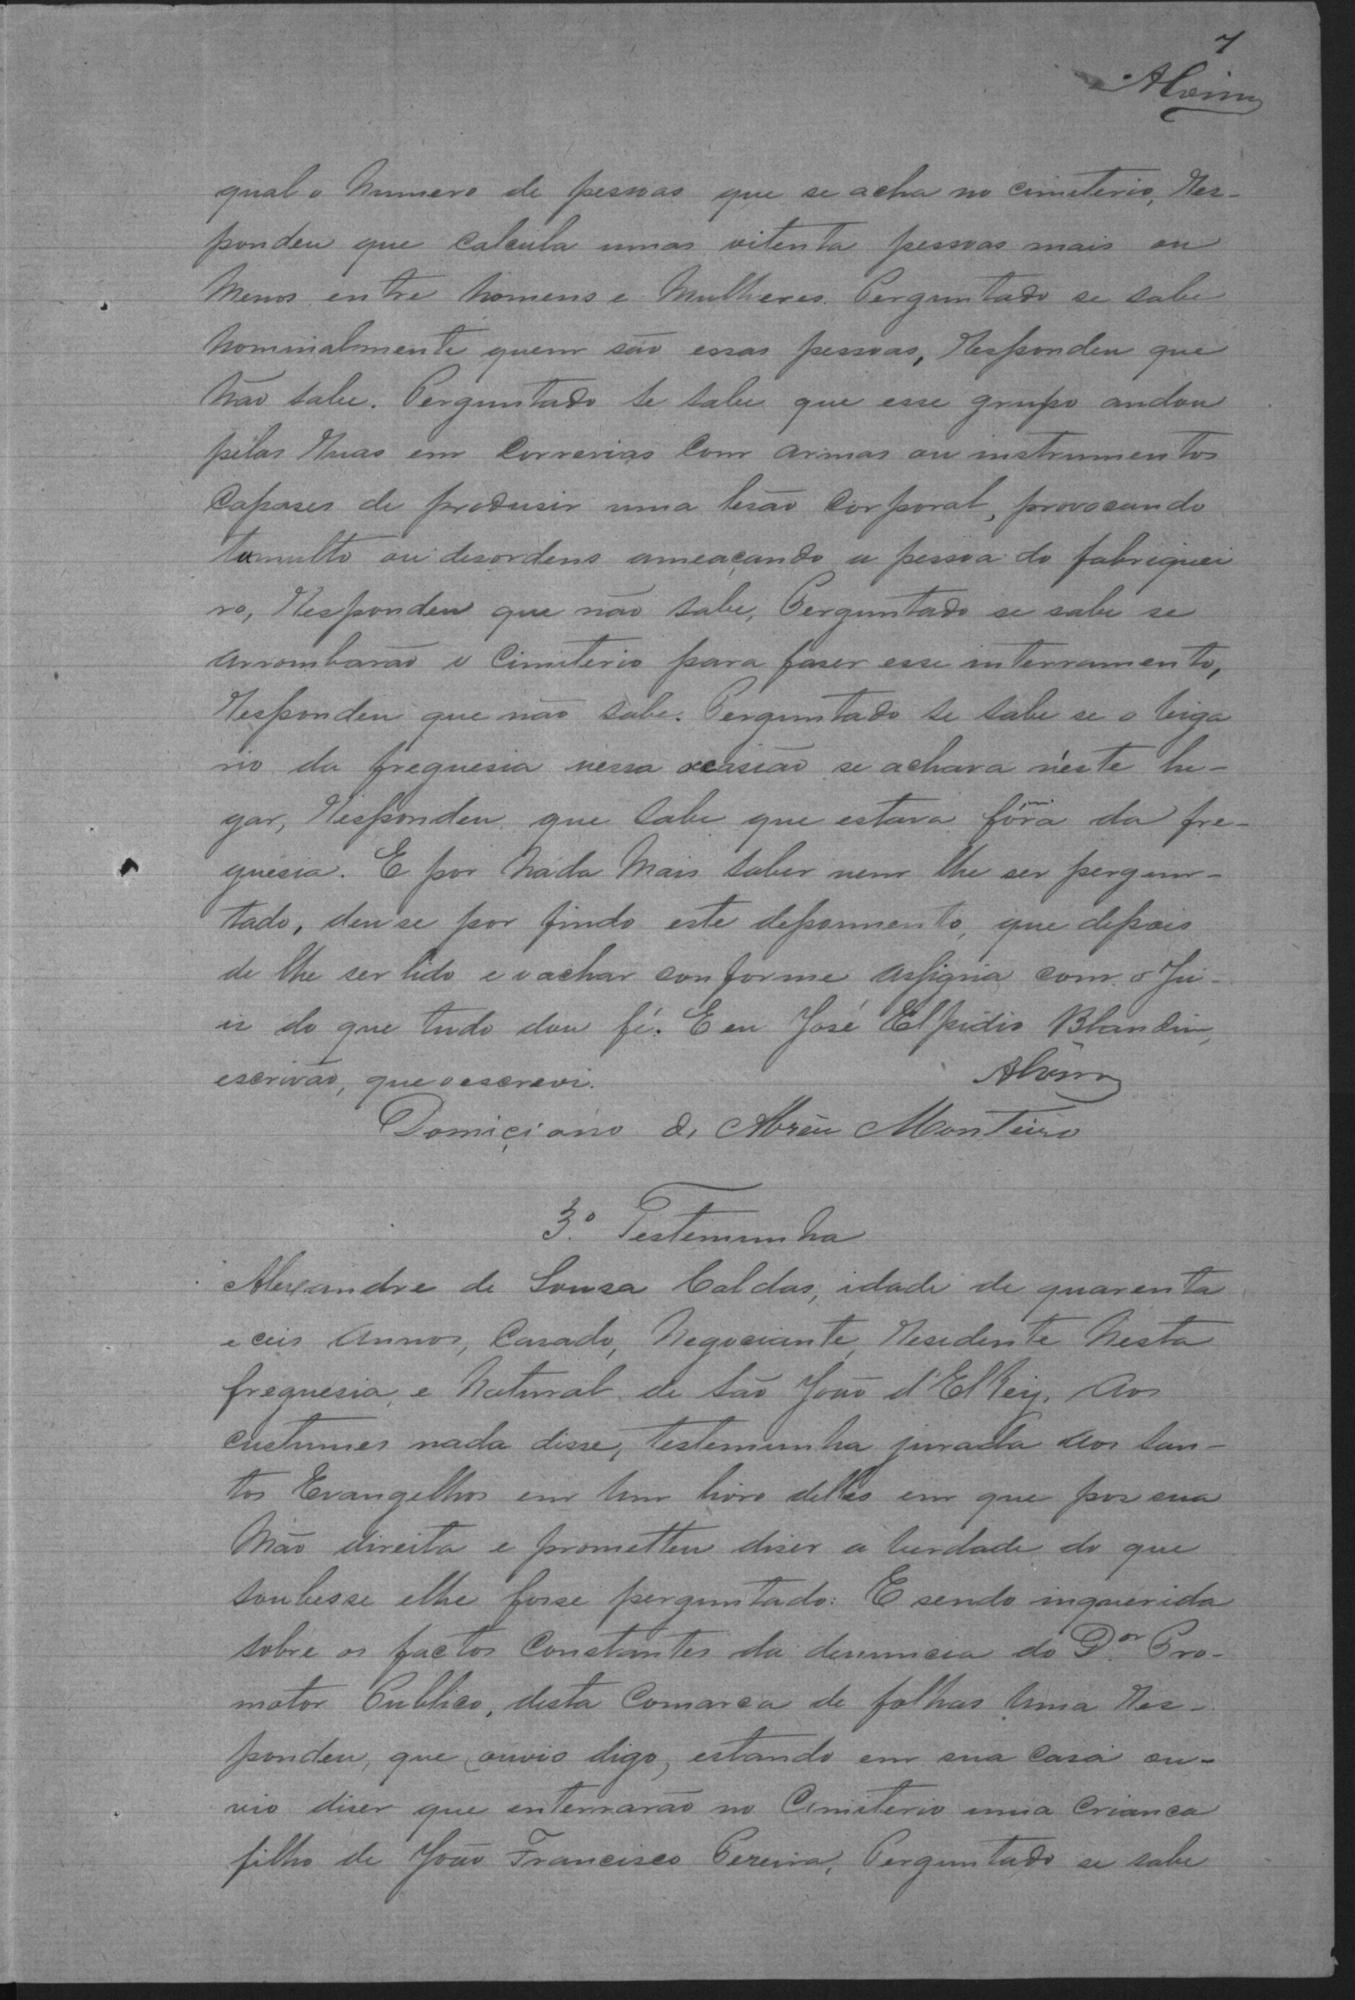 7
Alvim
qual o numero de pessoas que se acha no cimiterio, Res-
pondeu que calcula umas oitenta pessoas mais ou
menos entre homens e mulheres. Perguntado se sabe
nominalmente quem são essas pessoas, Respondeu que
não sabe. Perguntado se sabe que esse grupo andou
pelas Ruas em correrias com armas ou instrumentos
capases de produsir uma lesão corporal, provocando
tumulto ou desordens ameaçando a pessoa do fabriquei
ro, Respondeu que não sabe, Perguntado se sabe se
arrombarão o Cimiterio para faser esse interramento,
Respondeu que não sabe. Perguntado se sabe se o viga
rio da freguesia nessa ocasião se achava néste lu-
gar, Respondeu que sabe que estava fóra da fre-
guesia. E por nada mais saber nem lhe ser pergun-
tado, deu se por findo este depoimento, que depois
de lhe ser lido e o achar conforme assigna com o Ju-
is do que tudo dou fé. E eu José Elpidio Blandin,
escrivão, que o escrevi.
Alvim
Domiciano de Abrêu Monteiro
3.º Testemunha
Alexandre de Sousa Caldas, idade de quarenta
e ceis annos, casado, Negociante, Residente nesta
freguesia, e natural de São João d'ElRey. Aos
custumes nada disse, testemunha jurada aos san-
tos Evangelhos em um livro delles em que pos sua
mão direita e prometteu diser a verdade do que
soubesse e lhe fosse perguntado: E sendo inquerida
sobre os factos constantes da denuncia do Dor Pro-
motor Publico, desta Comarca de folhas uma Res-
pondeu, que ouvio digo, estando em sua casa ou-
vio diser que enterrarão no Cimiterio uma crianca
filho de João Francisco Pereira, Perguntado se sabe